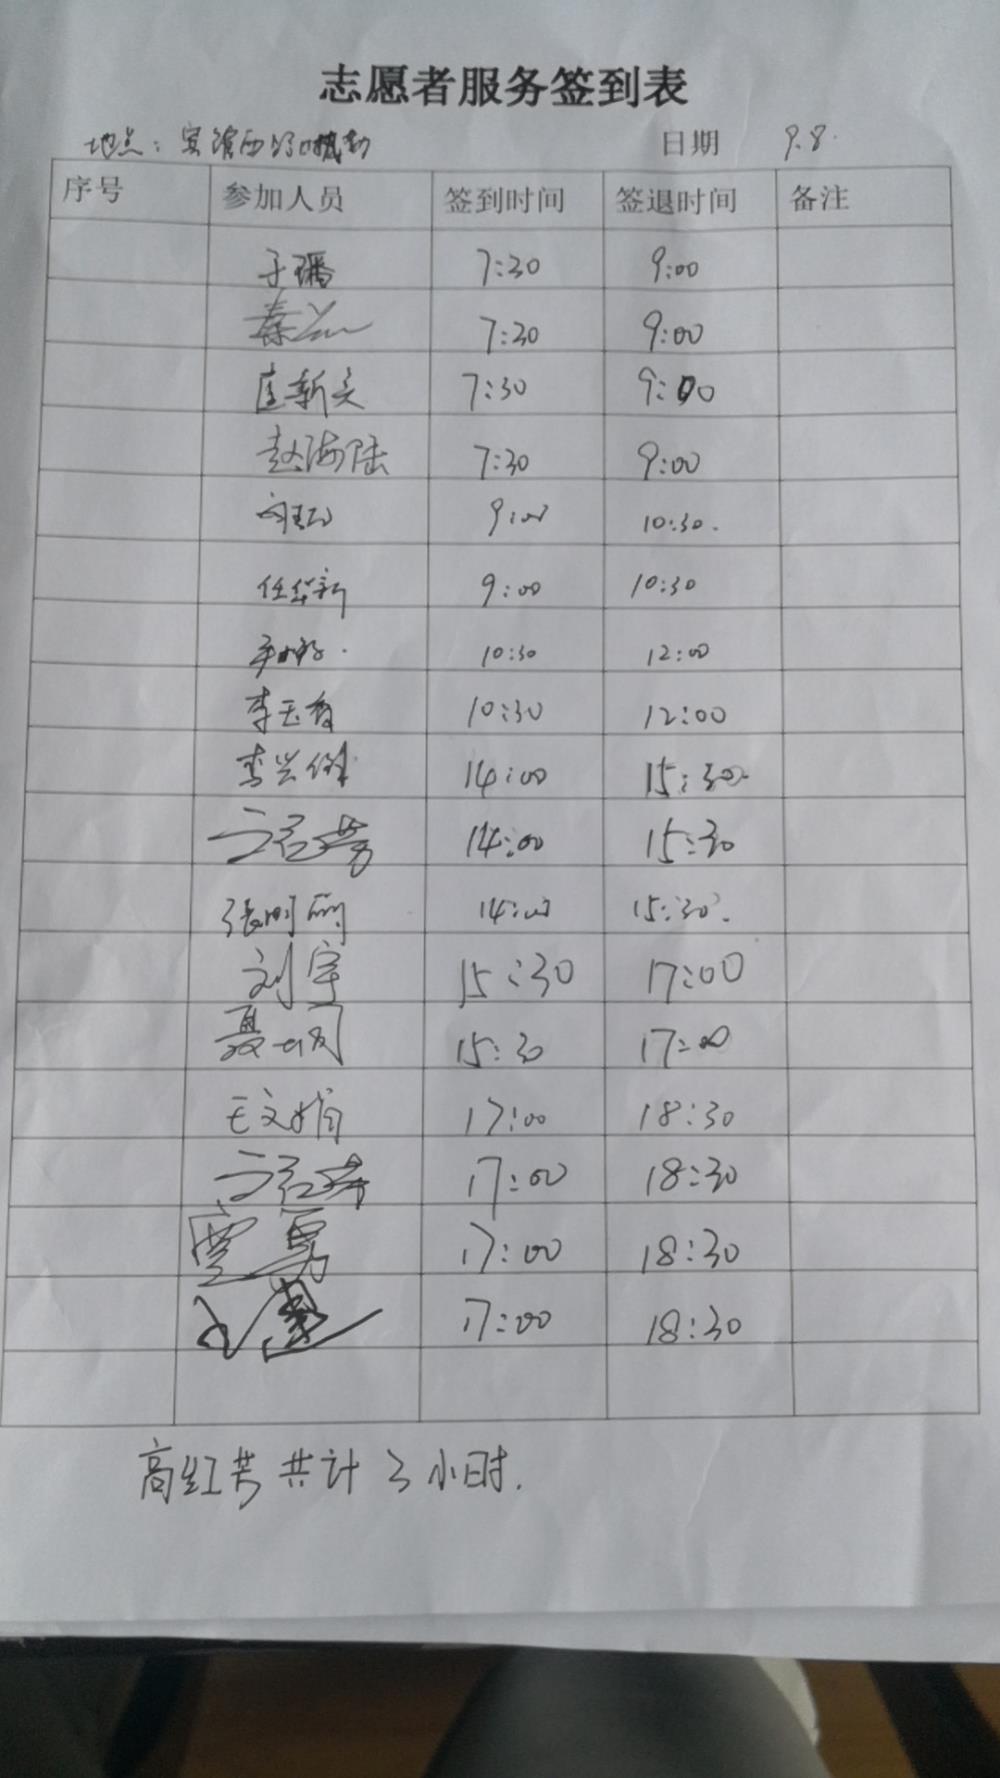 志愿者服务签到表
地点: 日期 9.8.
序号 参加人员 签到时间 签退时间 备注
于璠 7:30 9:00
秦 7:30 9:00
匡新文 7:30 9:00
赵海陆 7:30 9:00
9:00 10:30.
任华新 9:00 10:30
10:30 12:00
李玉春 10:30 12:00
李兴 14:00 15:30.
高红芳 14:00 15:30
张明丽 14:00 15:30.
刘宇 15:30 17:00
聂明 15:30 17:00
王文娟 17:00 18:30
高红芳 17:00 18:30
贾勇 17:00 18:30
17:00 18:30
高红芳 共计 3 小时.